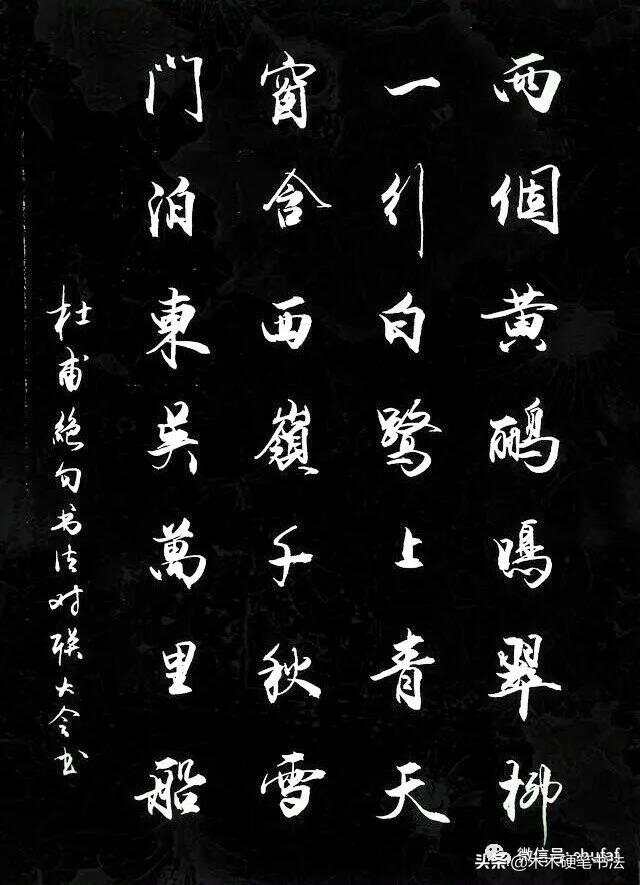 兩個黃鸝鳴翠柳
一行白鹭上青天
窗含西嶺千秋雪
門泊東吴萬里船
杜甫絕句书法对联大会书
微信号: shufaf
头条@木木硬笔书法